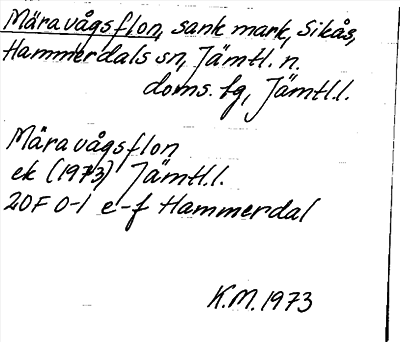 Märavågsflon, sank mark, Sikås,
Hammerdals sn, Jämtl. n.
doms. fg, Jämtl.l.
Märavågsflon
ek (1973) Jämtl.l.
20F 0-1 e-f Hammerdal
K.M. 1973